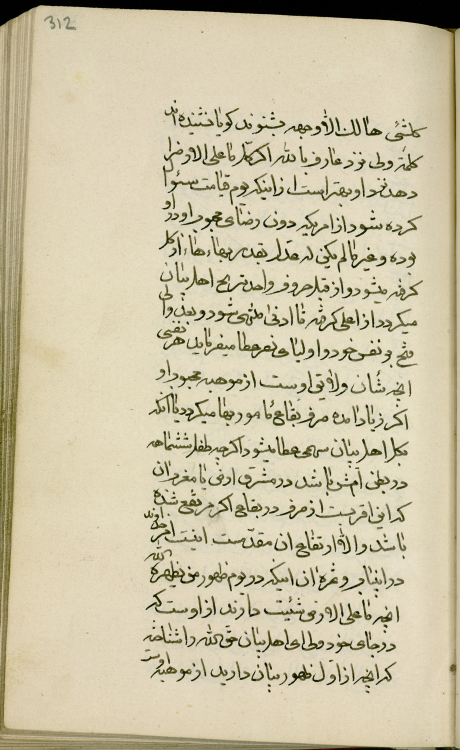 312
کلشئی هالک الا وجهه بشنوند گویا نشنیده اند
کلمة ولی نزد عارف بالله اگر کل ما علی الارض را
دهد نزد او بهتر است از اینکه یوم قیامت سئوال
کرده شود از امریکه دون رضای محبوب او در او
بوده و غیر ما لم یکن له عدل بقدر بهاء هاء از کل
گرفته میشود و از قبل حروف واحد بر اهل بیان
میگردد از اعلی گرفته تا ادنی منتهی شود و بعد ولی
فتح نفس خود و اولیای عطا میفرماید هر نفسی
آنچه شان ولایق اوست از موهبه محبوب او
اگر زیاد آمده مرفوع بقاعی مامور بها میگردد تا آنکه
بکل اهل بیان سهمی عطا میشود اگرچه طفل ششماهه
در بطن امش باشد در مشرق ارض یا مغرب آن
که این اقرب است از صرف در بقاعی اگر مرتفع شده
باشد والا ارتفاع آن مقدم است اینست امر خداوند
در این باب و ثمره آن اینکه در یوم ظهور من یظهره الله
آنچه ما علی الارض شیئیت دارند از اوست که
در جای خود ولی ای اهل بیان حق الله را شناخته
که آنچه از اول ظهور بیان دارید از موهبه اوست